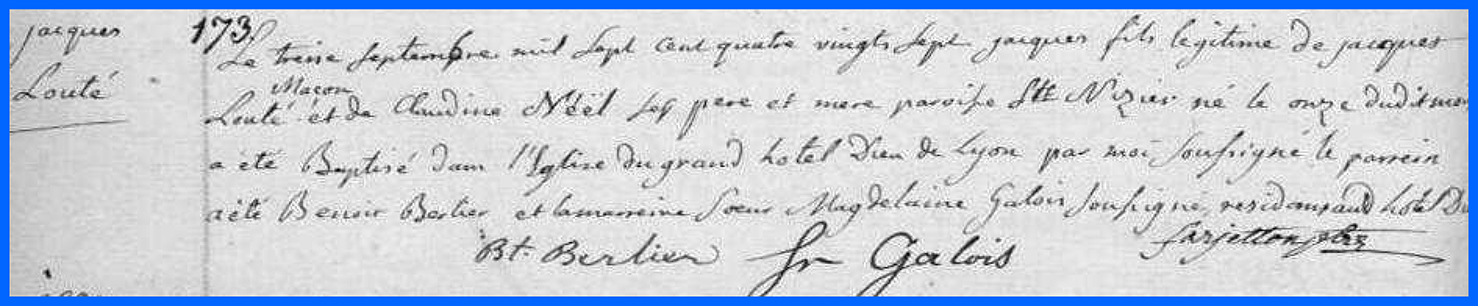 jacques
Louté
173
Le treise septembre mil sept cent quatre vingts sept jacques fils legitime de jacques
Macon
Louté et de Claudine Nöël ses pere et mere paroisse Stt Nizier né le onze dudit mois
a été Baptisé dans l'Eglise du grand hotel Dieu de Lyon par moi soussigné le parrein
a été Benoir Berlier et la marreine Soeur Magdelaine Galois soussigné, residans aud hotel Di
Bt. Berlier Sr Galois farjetton ptre